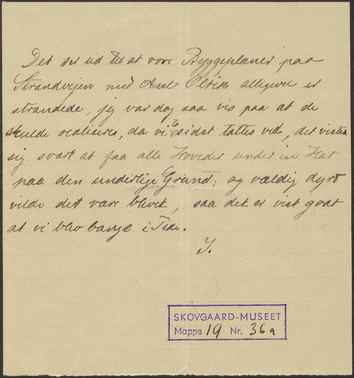 Det ser ud til at vore Byggeplaner paa
Strandvejen med Axel alligevel er
strandede, jeg var dog saa vis paa at de
skulde realiseres, da vi sidst taltes ved, det
sig svært at faa alle Hoveder under en Hat
paa den underlige Grund, og vældig dyrt
vilde det være blevet, saa det er vist godt
at vi blev bange i Tide.
J.
SKOVGAARD-MUSEET
Mappe 19 Nr. 36a